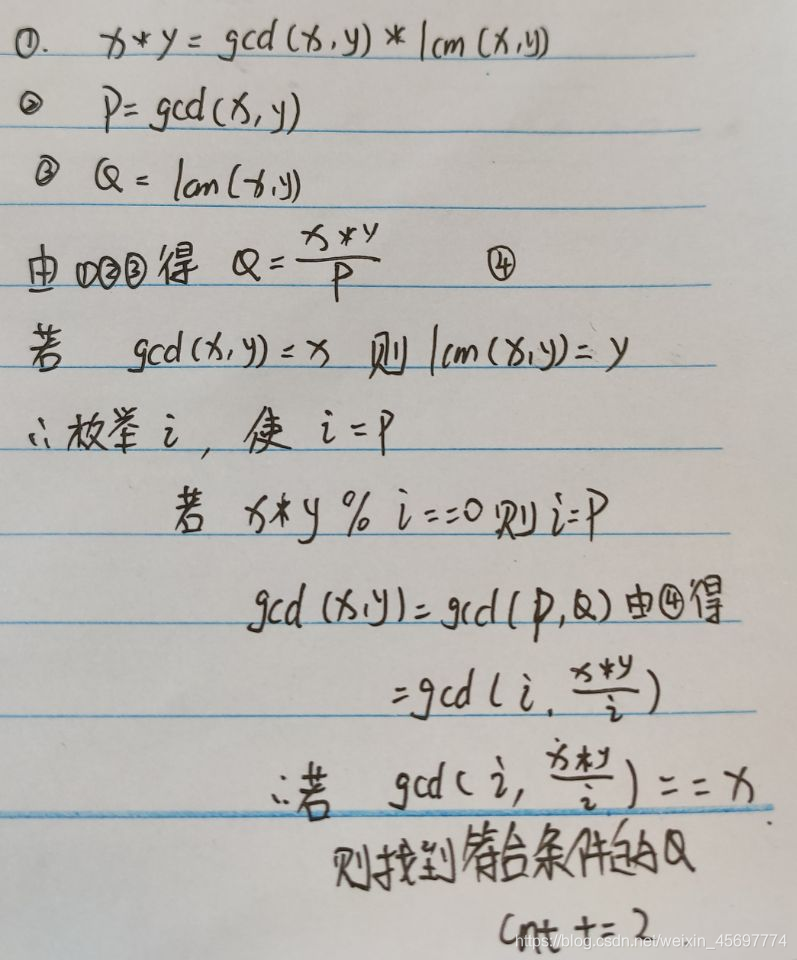 ①. x*y=gcd(x,y)*lcm(x,y)
② P=gcd(x,y)
③ Q=lcm(x,y)
由①②③得 Q=x*y/P ④
若 gcd(x,y)=x 则 lcm(x,y)=y
∴枚举 i, 使 i=P
若 x*y%i==0则i=P
gcd(x,y)=gcd(P,Q)由④得
=gcd(i,x*y/i)
∴若 gcd(i,x*y/i)==x
则找到符合条件的Q
cnt+=2
https://blog.csdn.net/weixin_45697774